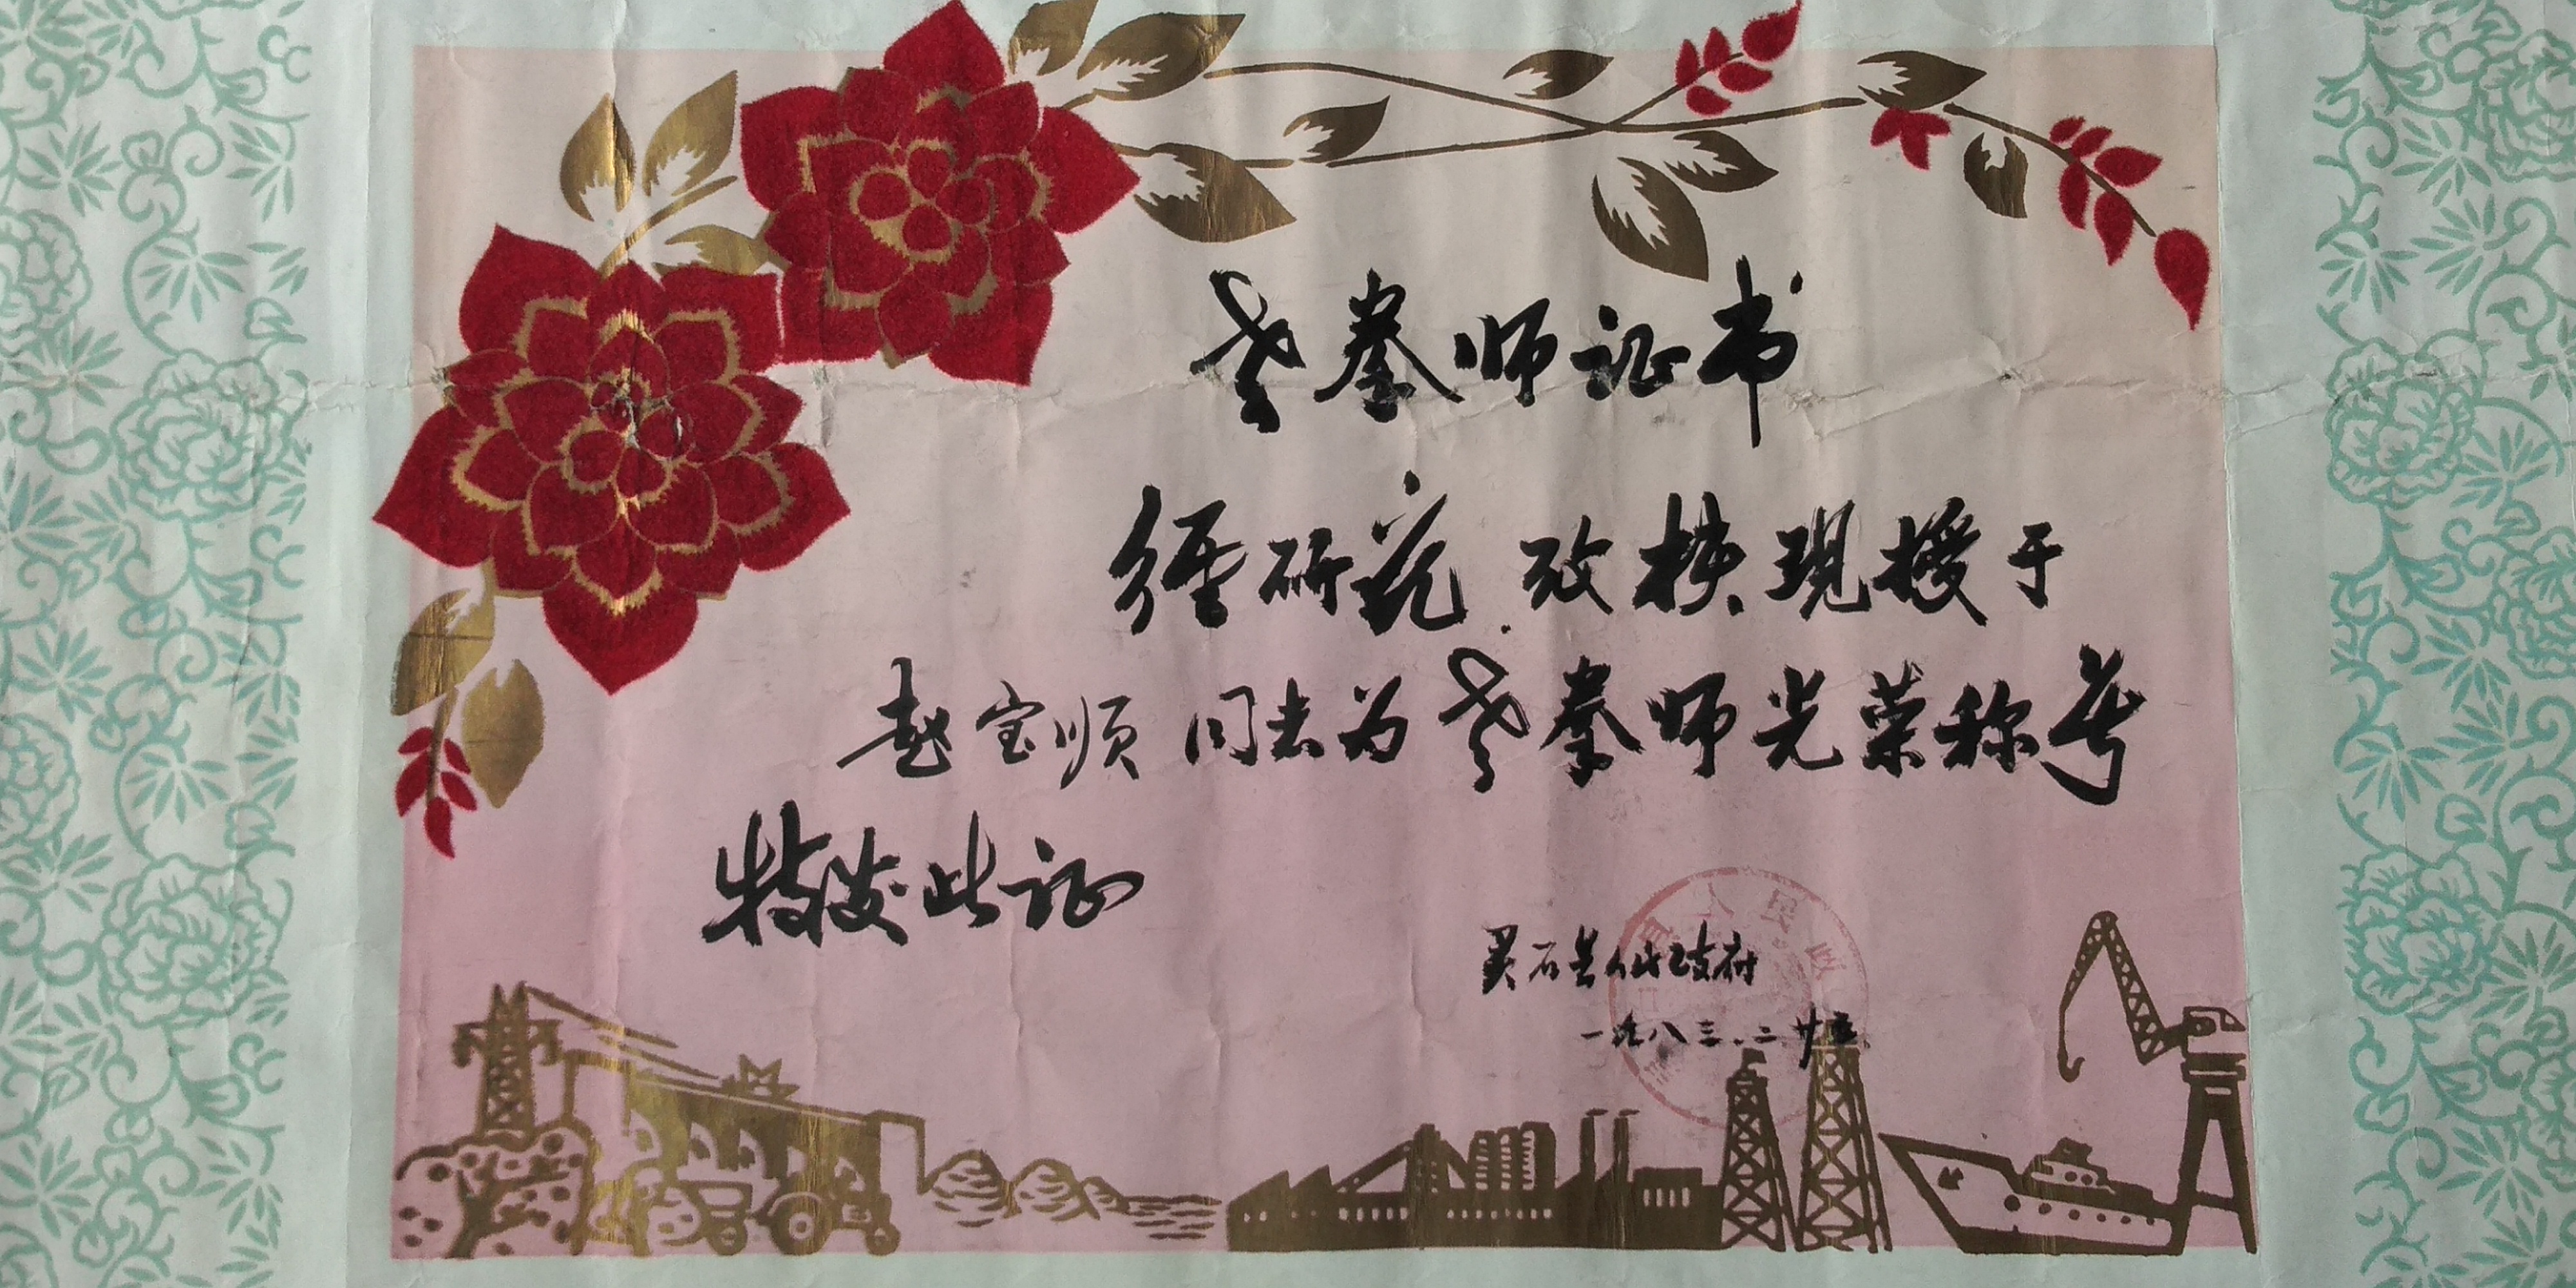 老拳师证书
经研究 考核现授于
赵宝顺同志为老拳师光荣称号
特发此证
灵石县人民政府
一九八三.二廿五